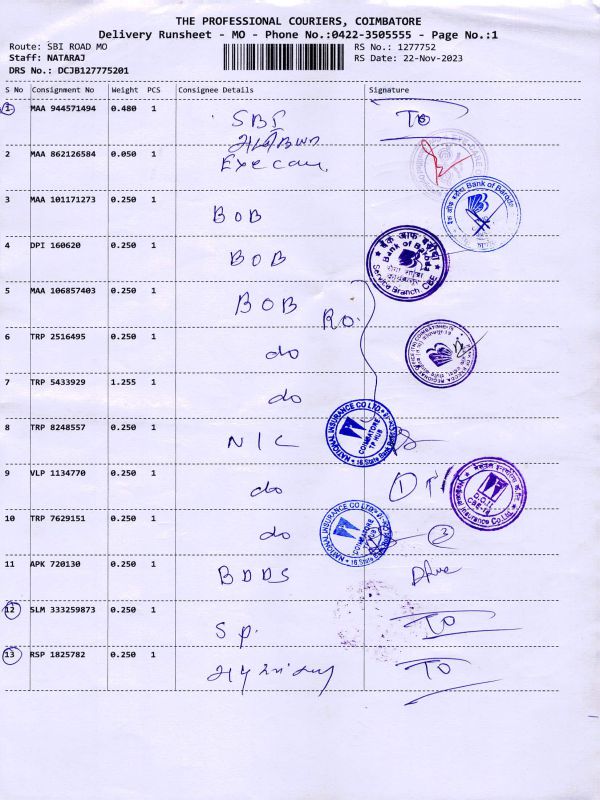 THE PROFESSIONAL COURIERS, COIMBATORE
Delivery Runsheet - MO - Phone No.:0422-3505555 - Page No.:1
Route: SBI ROAD MO RS No.: 1277752
Staff: NATARAJ RS Date: 22-Nov-2023
DRS No.: DCJB127775201
S No Consignment No Weight PCS Consignee Details Signature
1 MAA 944571494 0.480 1 SBI TO
2 MAA 862126584 0.050 1
3 MAA 101171273 0.250 1 BOB
Bank of Baroda
4 DPI 160620 0.250 1 BOB
बैंक ऑफ बड़ौदा
Bank of Baroda
Service Branch, CBE
5 MAA 106857403 0.250 1 BOB RO.
6 TRP 2516495 0.250 1 do
7 TRP 5433929 1.255 1 do
8 TRP 8248557 0.250 1 NIC
NATIONAL INSURANCE CO LTD
COIMBATORE
TP HUB
9 VLP 1134770 0.250 1 do 1
Insurance Co.Ltd.
10 TRP 7629151 0.250 1 do 3
NATIONAL INSURANCE CO LTD
COIMBATORE
TP HUB
11 APK 720130 0.250 1 BDDS
12 SLM 333259873 0.250 1 Sp. TO
13 RSP 1825782 0.250 1 TO